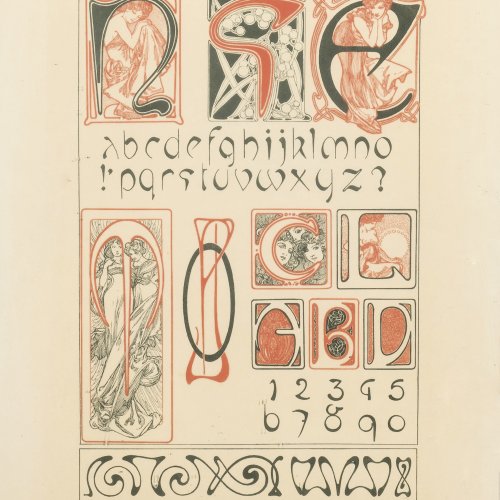 n s e
abcdefghijklmno
!'pqrstuvwxyz?
C L
A B D
1 2 3 4 5
6 7 8 9 0